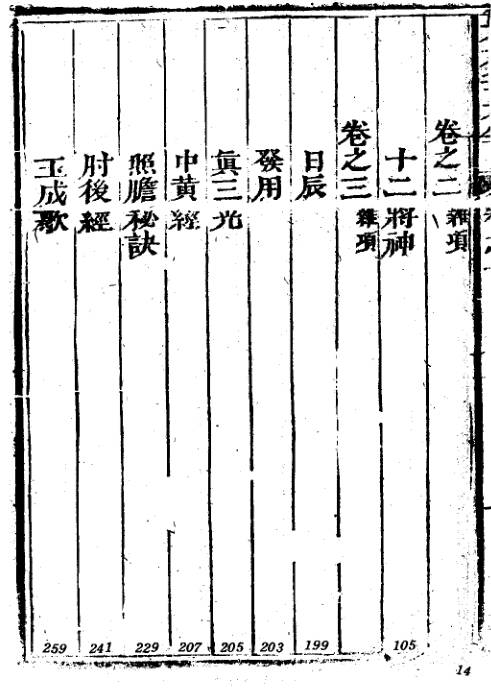 卷之二 雜項
十二將神 105
卷之三 雜項
日辰 199
發用 203
眞三光 205
中黄經 207
照膽秘訣 229
肘後經 241
玉成歌 259
14